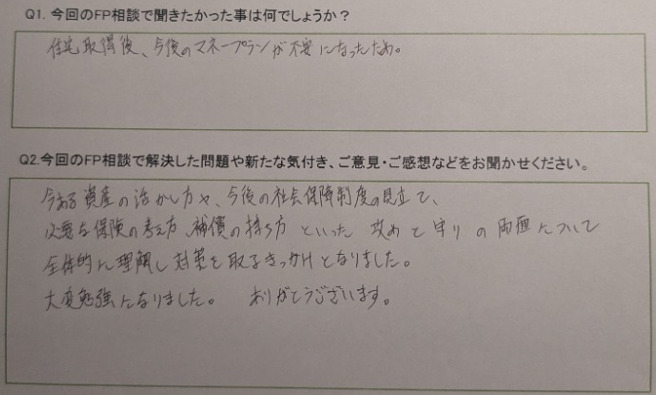 Q1. 今回のFP相談で聞きたかった事は何でしょうか？
住宅取得後、今後のマネープランが不安になったため。
Q2.今回のFP相談で解決した問題や新たな気付き、ご意見・ご感想などをお聞かせください。
今ある資産の活かし方や、今後の社会保障制度の見立て、
必要な保険の考え方、補償の持ち方といった 攻めと守りの両面について
全体的に理解し対策を取るきっかけとなりました。
大変勉強になりました。 ありがとうございます。